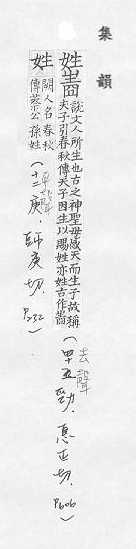 集韻
姓
說文人所生也古之神聖母感天而生子故稱
天子引春秋傳天子因生以賜姓亦姓古作
(去聲 四十五勁．息正切．P606)
姓
闕人名春秋
傳蔡公孫姓
(平聲 十二庚．師庚切．P232)